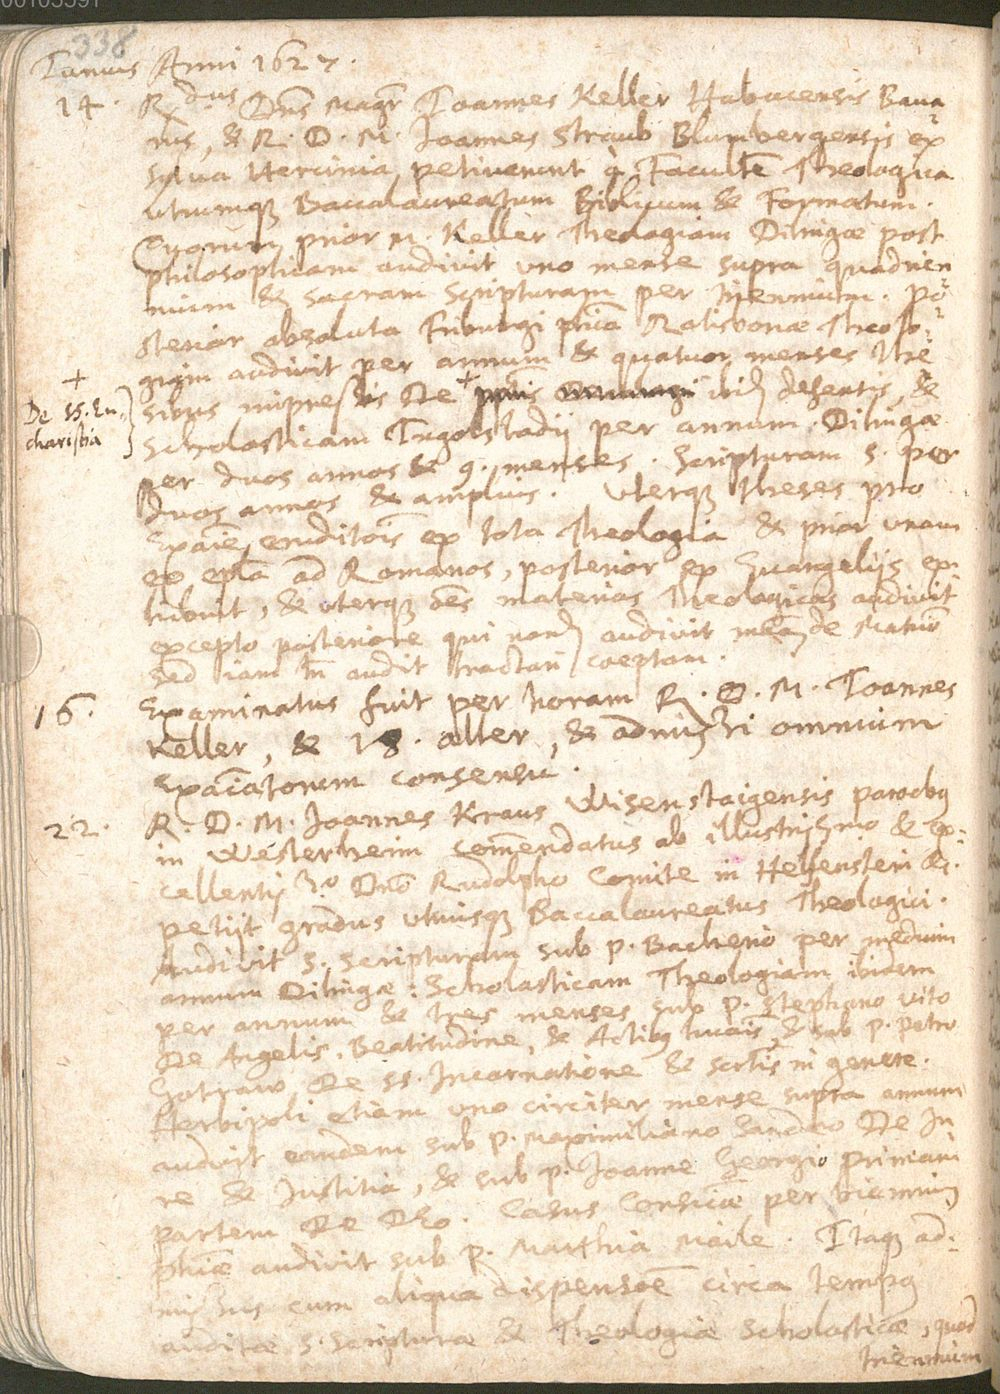 00103391
338
Iunius Anni 1627.
14. R.dus Dns Magr Ioannes Keller Habacensis Bava-
rus, & R. D. M. Ioannes Straub Blumbergensis ex
sylua Hercinia, petiverunt à Facultē Theologica
utrumq; Baccalaureatum Biblicum & Formatum.
Quorum prior M. Keller Theologiam Dilingæ post
philosophiam audivit uno mense supra quadrien
nium & sacram scripturam per triennium. Po-
sterior absoluta Friburgi phiā Ratisbonæ Theolo-
giam audivit per annum & quatuor menses the
sibus impressis De + ibid defensis, &
+ De SS. Eu-
charistia
Scholasticam Ingolstadij per annum. Dilingæ
per duos annos & 9. menses. Scripturam S. per
duos annos & amplius. Uterq; theses pro
Exaīe eruditois ex tota Theologia & prior unam
ex eplā ad Romanos, posterior ex Euangelijs ex-
hibuit, & uterq; oēs materias Theologicas audivit
excepto posteriore qui nond audivit de Matrim
sed iam tn audit tractari coeptam.
16. Examinatus fuit per horam R. D. M. Ioannes
Keller, & 18. alter, & admissi omnium
Exaīatorum consensu.
22. R. D. M. Ioannes Kraus Wisenstaigensis parochus
in Westerheim comendatus ab illustrissimo & ex-
cellentissi.o Dnō Rudolpho Comite in Helfenstein &c.
petijt gradus utriusq; Baccalaureatus Theologici.
Audivit S. Scripturam sub P. Bacherio per medium
annum Dilingæ: Scholasticam Theologiam ibidem
per annum & tres menses sub P. Stephano Vito
De Angelis, Beatitudine, & Actibq humais, & sub P. Petro
De SS. Incarnatione & Sactis in genere.
Herbipoli etiam uno circiter mense supra annum
audivit eandem sub P. Maximiliano Sandæo De Iu
re & Justitia, & sub P. Joanne Georgio primam
partem De Deo. Casus Consciæ per biennium
audivit sub P. Matthia Maile. Itaq; ad-
missus cum aliqua dispensoē circa tempq
auditæ S. Scripturæ & Theologiæ Scholasticæ, quod
triennium